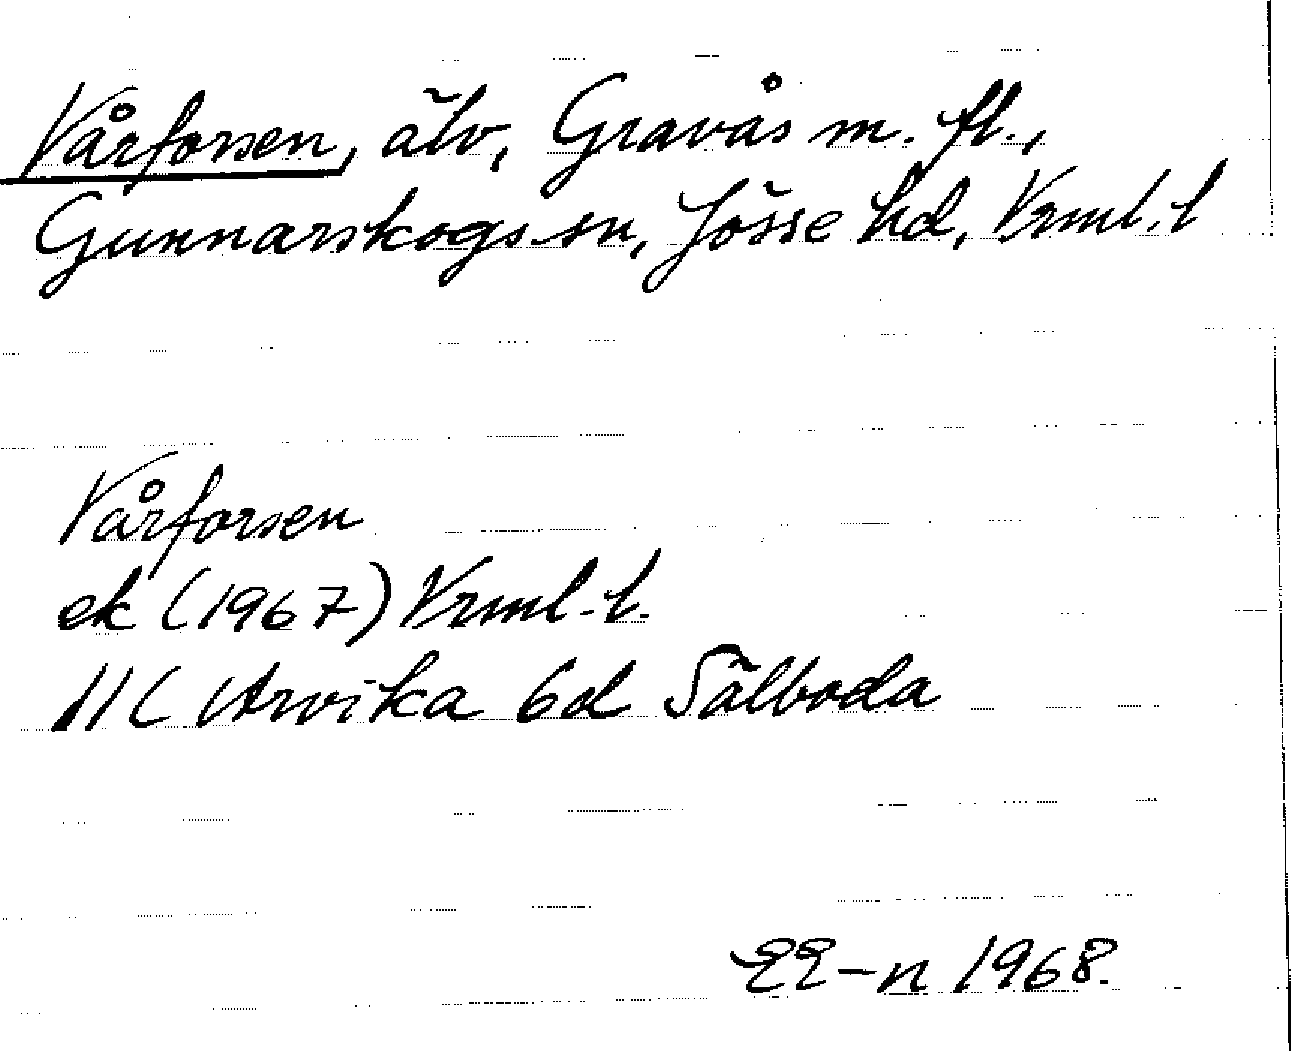 Vårforsen, älv, Gravås m. fl.,
Gunnarskogs sn, Jösse hd, Vrml. l
Vårforsen
ek (1967) Vrml. l.
11C Arvika 6d Sälboda
EE-n 1968.